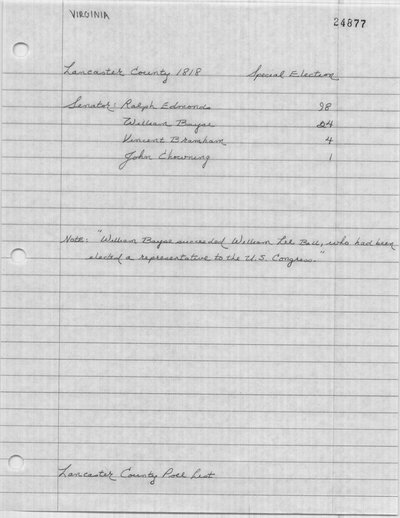 VIRGINIA
24877
Lancaster County 1818 Special Election
Senator: Ralph Edmonds 98
William Bayse 24
Vincent Bramham 4
John Chowning 1
Note: "William Bayse succeeded William Lee Ball, who had been
elected a representative to the U.S. Congress."
Lancaster County Poll List